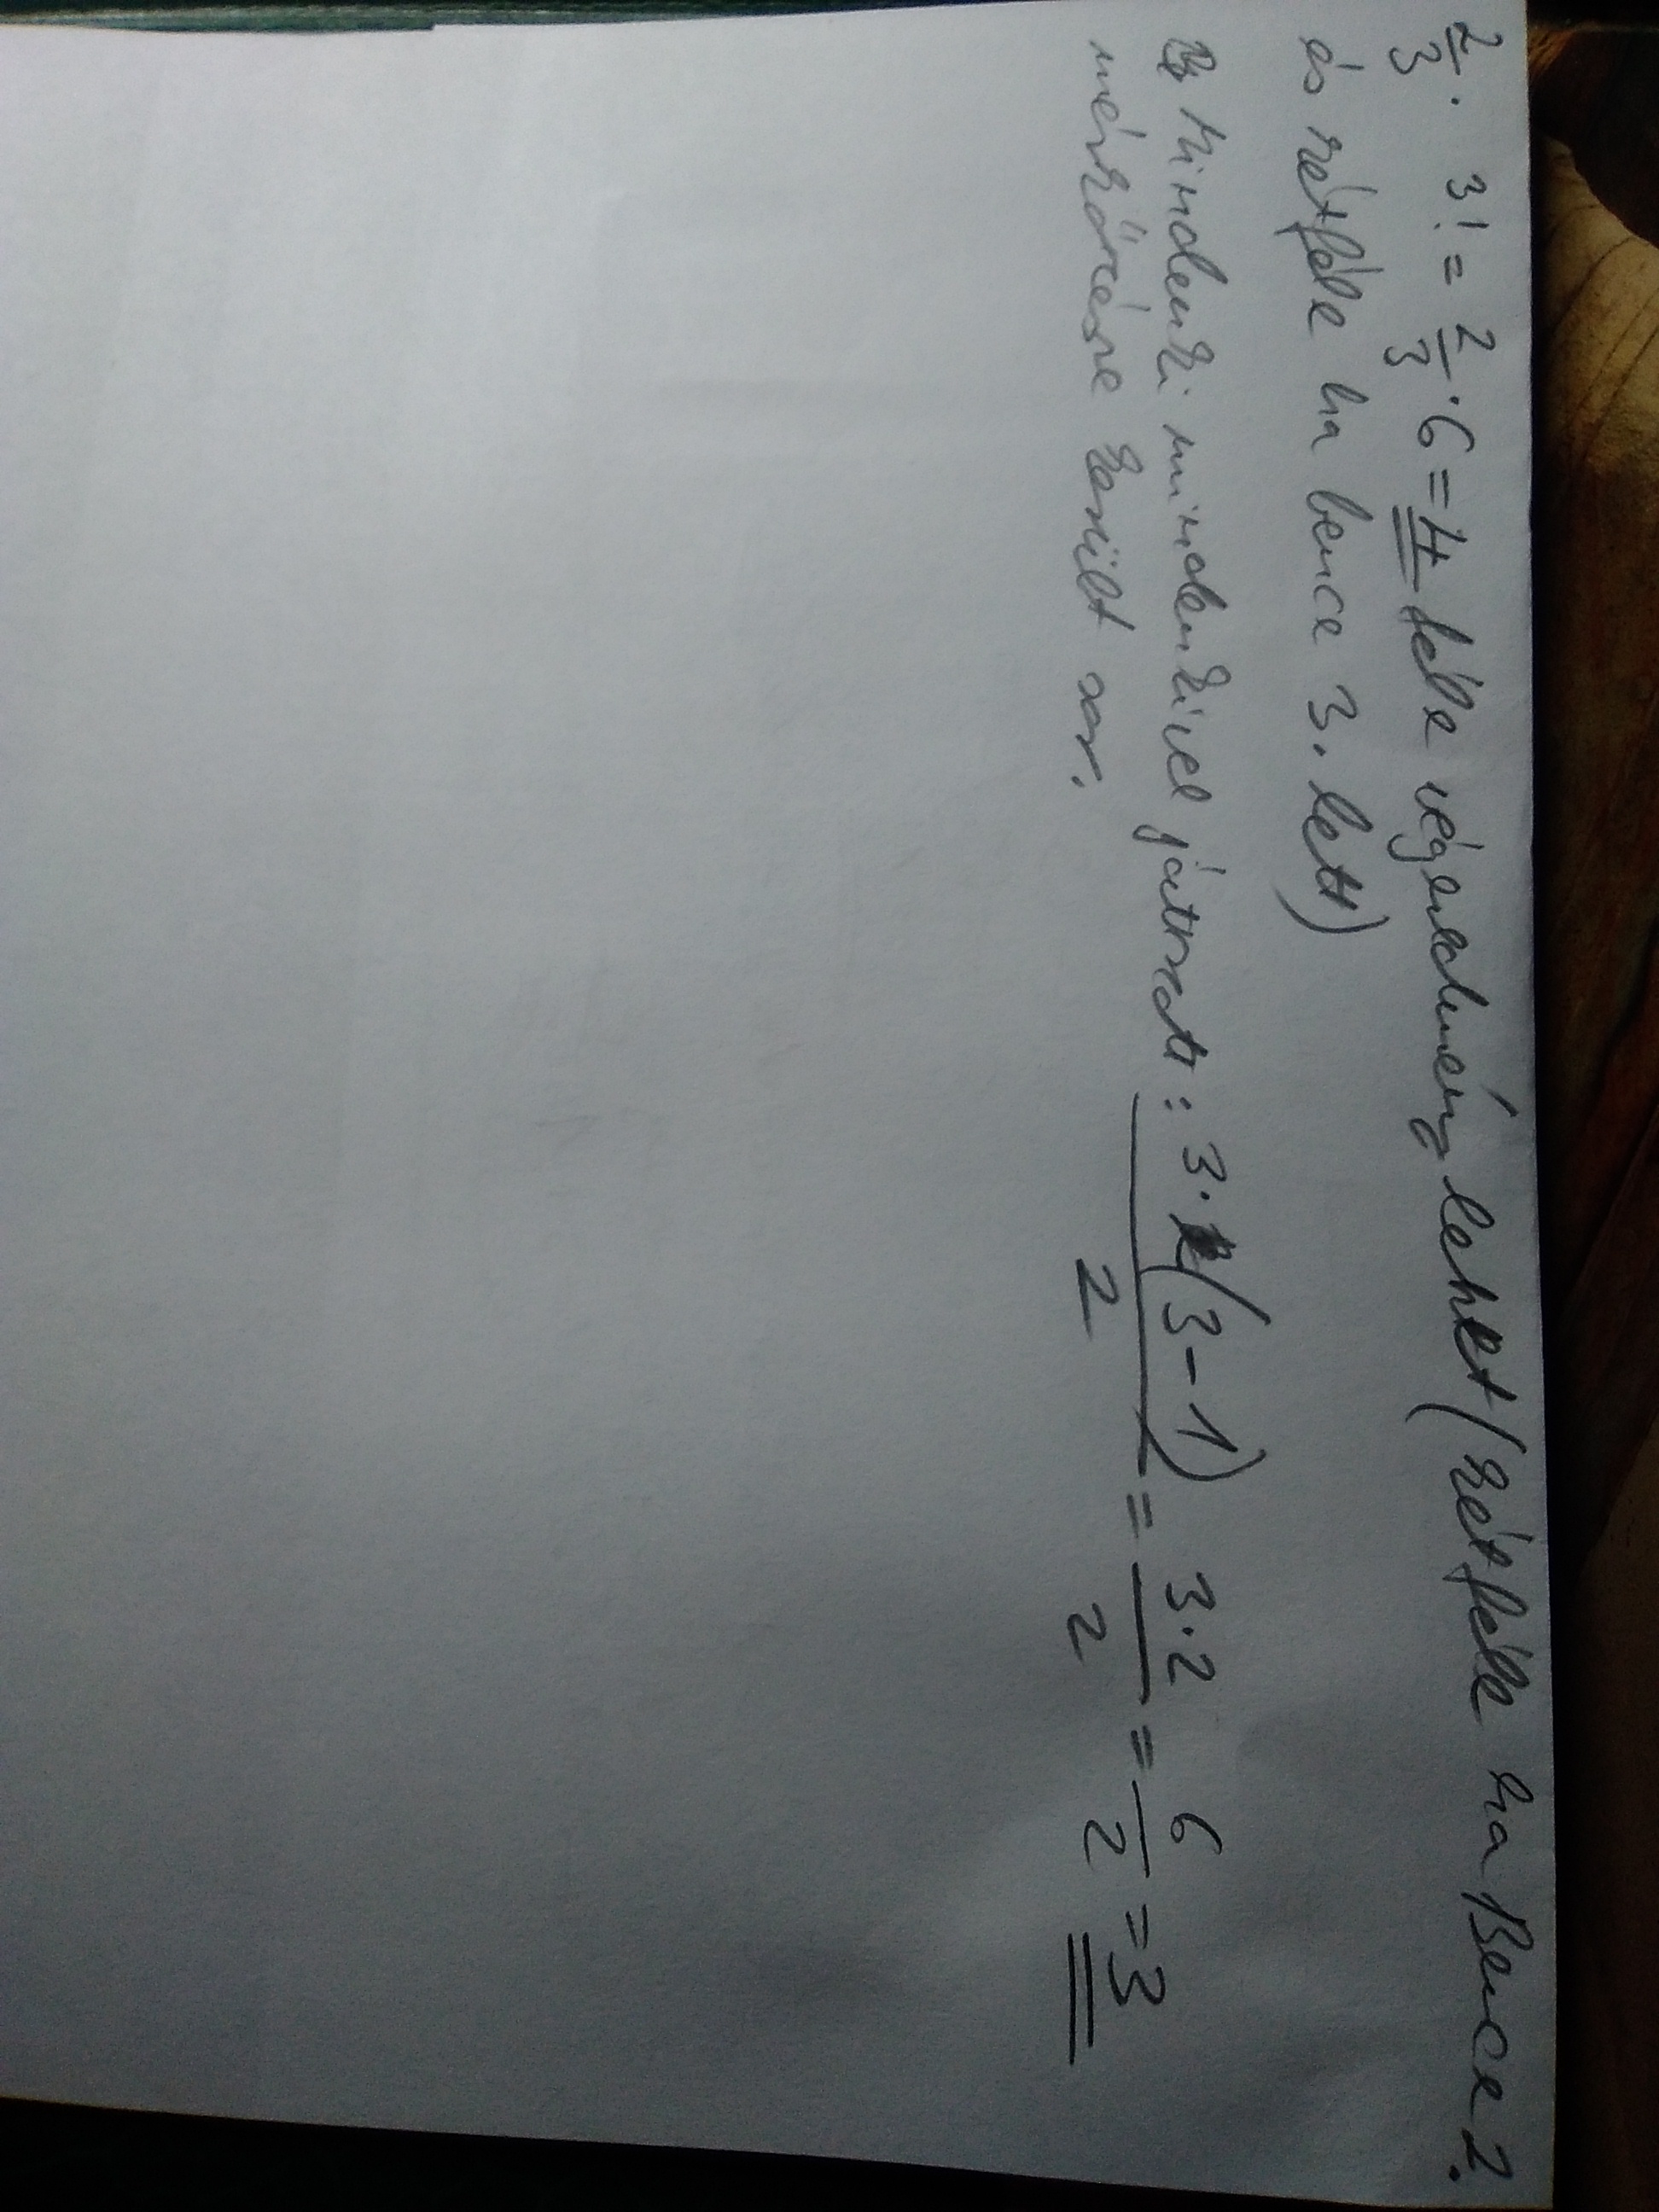 2/3 · 3! = 2/3 · 6 = 4 féle végeredmény lehet (kétféle ha Bence 2.
és kétféle ha bence 3. lett)
Mindenki mindenkivel játszott: 3·(3-1)/2 = 3·2/2 = 6/2 = 3
mérkőzésre került sor.